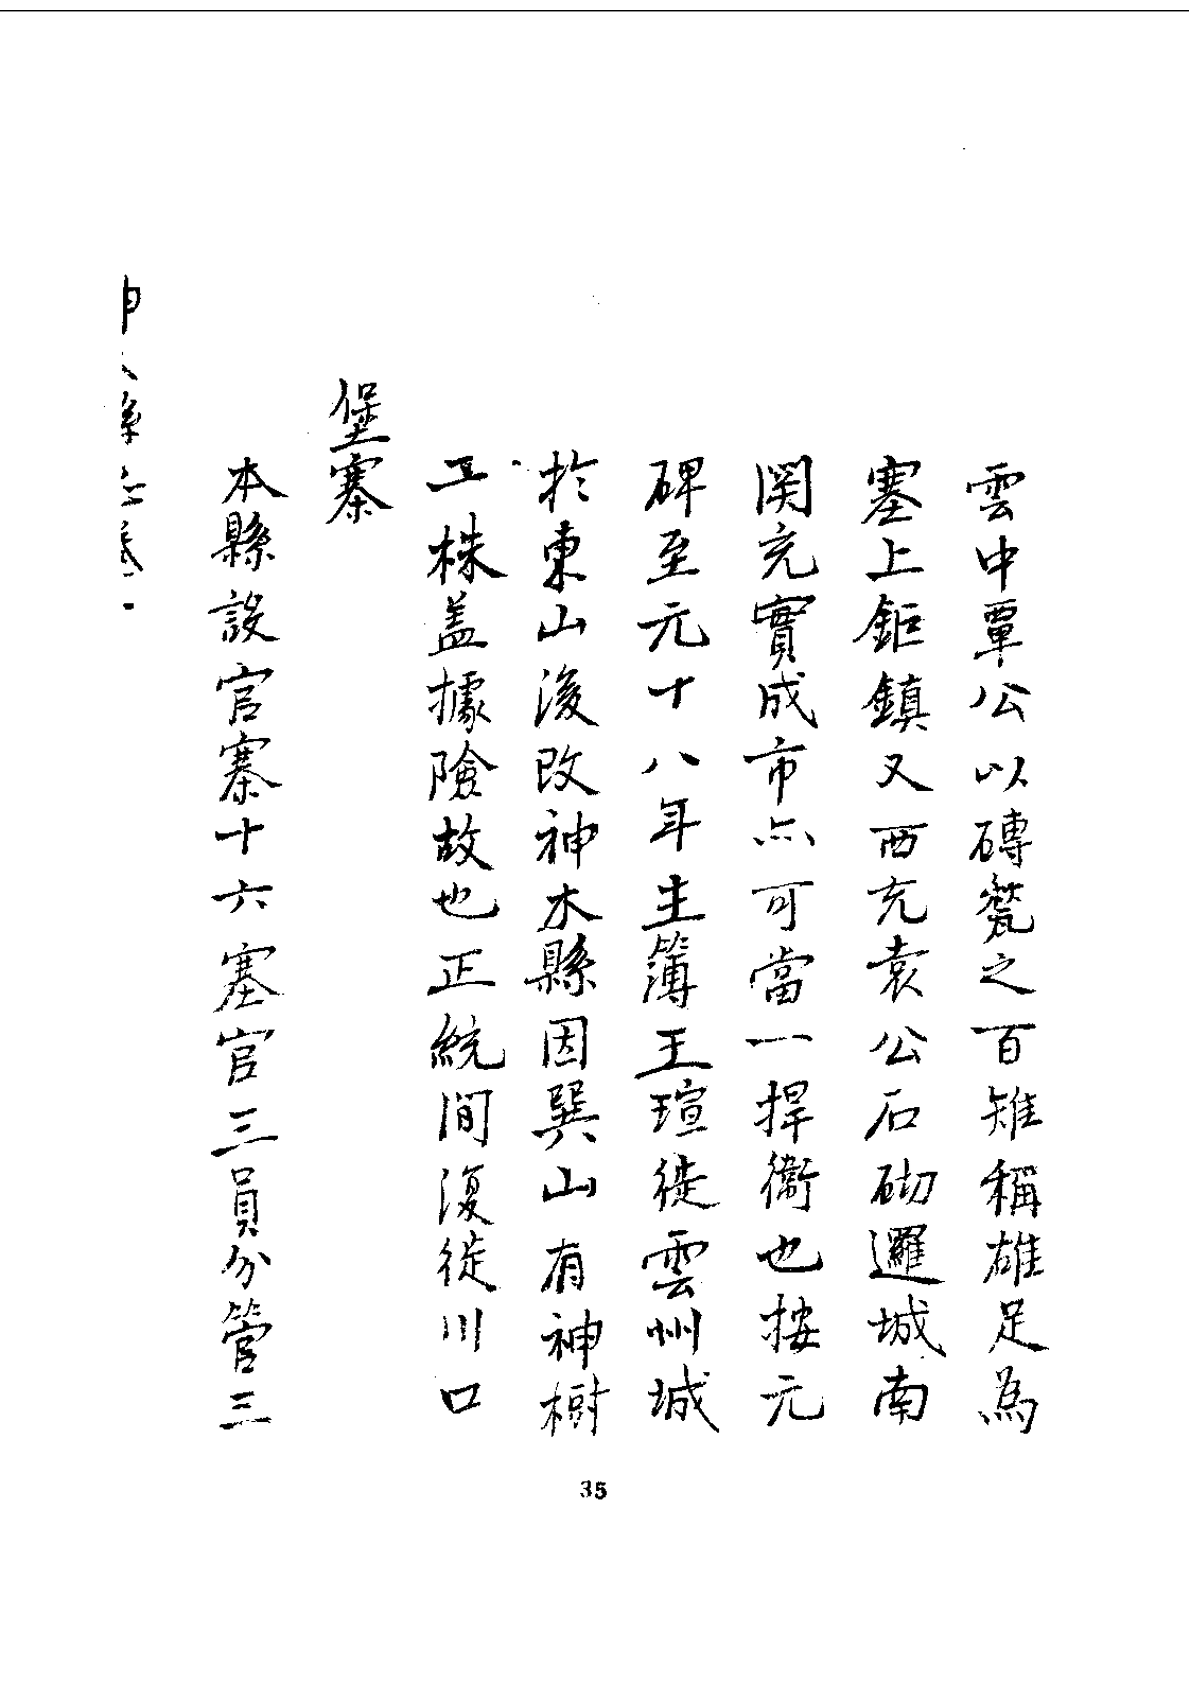 雲中覃公以磚甃之百雉稱雄足為
塞上鉅鎮又西充袁公石砌邏城南
関充實成市亦可當一捍衛也按元
碑至元十八年主簿王瑄徙雲州城
於東山後改神木縣因巽山有神樹
三株盖據險故也正統間復徙川口
堡寨
本縣設官寨十六塞官三員分管三
35